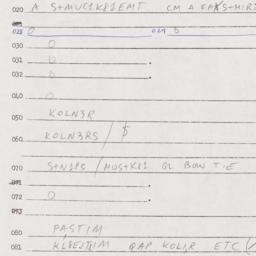 020 A S+MUC1K81EMT CM A
021 0 024 5
030 0
031 0
032 0
040 0
050 KOLN3R
060 KOLN3RS / $
070 S+N1PS / MUS+K81 GL BOW TIE
071
072 0
073
080 PASTIM
081 KLBEJTIM QAP KOLIR ETC